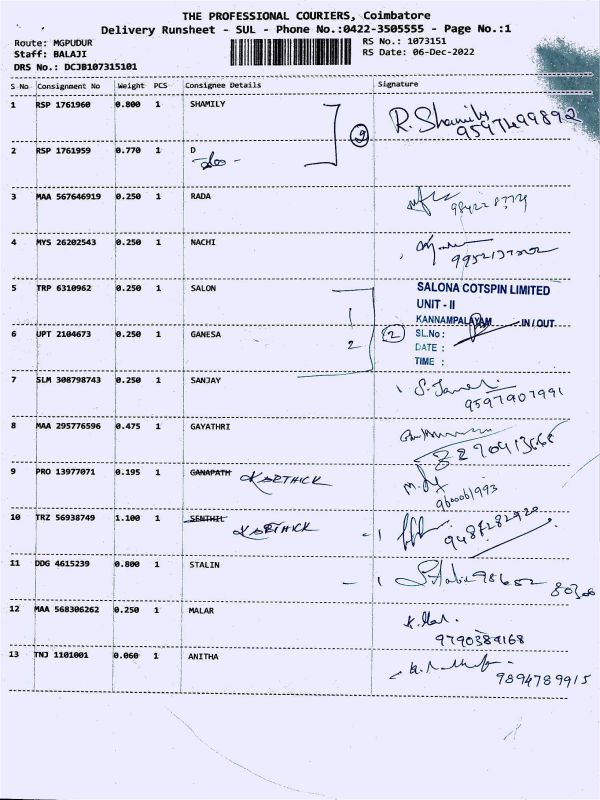 THE PROFESSIONAL COURIERS, Coimbatore
Delivery Runsheet - SUL - Phone No.:0422-3505555 - Page No.:1
Route: MGPUDUR RS No.: 1073151
Staff: BALAJI RS Date: 06-Dec-2022
DRS No.: DCJB107315101
S No Consignment No Weight PCS Consignee Details Signature
1 RSP 1761960 0.800 1 SHAMILY R. Shamily
9597499892
2 RSP 1761959 0.770 1 D
3 MAA 567646919 0.250 1 RADA
4 MYS 26202543 0.250 1 NACHI
5 TRP 6310962 0.250 1 SALON SALONA COTSPIN LIMITED
UNIT - II
1 KANNAMPALAYAM IN / OUT
6 UPT 2104673 0.250 1 GANESA 2 2 SL.No :
DATE :
TIME :
7 SLM 308798743 0.250 1 SANJAY
9597907991
8 MAA 295776596 0.475 1 GAYATHRI
9 PRO 13977071 0.195 1 GANAPATH KARTHICK
9600061993
10 TRZ 56938749 1.100 1 SENTHIL KARTHICK 9487282920
11 DDG 4615239 0.800 1 STALIN
12 MAA 568306262 0.250 1 MALAR
9790389168
13 TNJ 1101001 0.060 1 ANITHA
9894789915